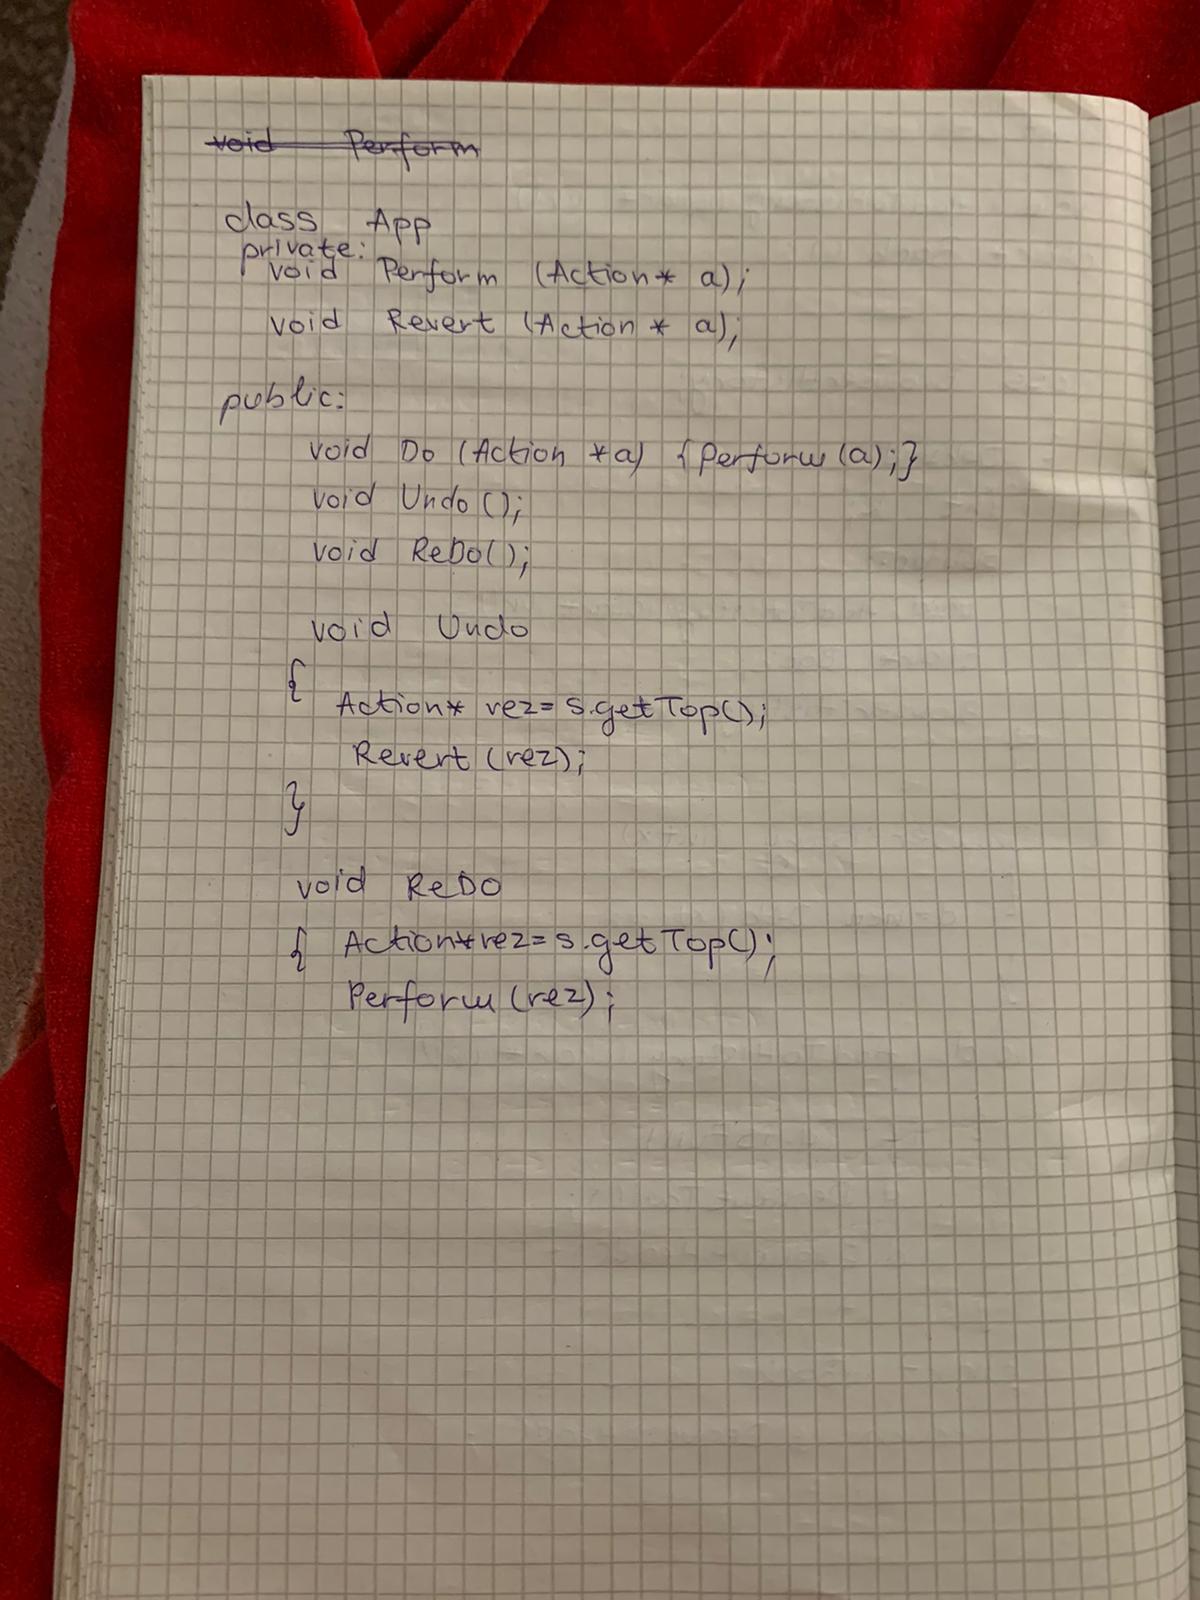 void Perform
class App
private:
void Perform (Action* a);
void Revert (Action * a);
public:
void Do (Action *a) {Perform (a);}
void Undo ();
void ReDo();
void Undo
{
Action* rez= s.getTop();
Revert (rez);
}
void ReDO
{ Action*rez= s.getTop();
Perform (rez);